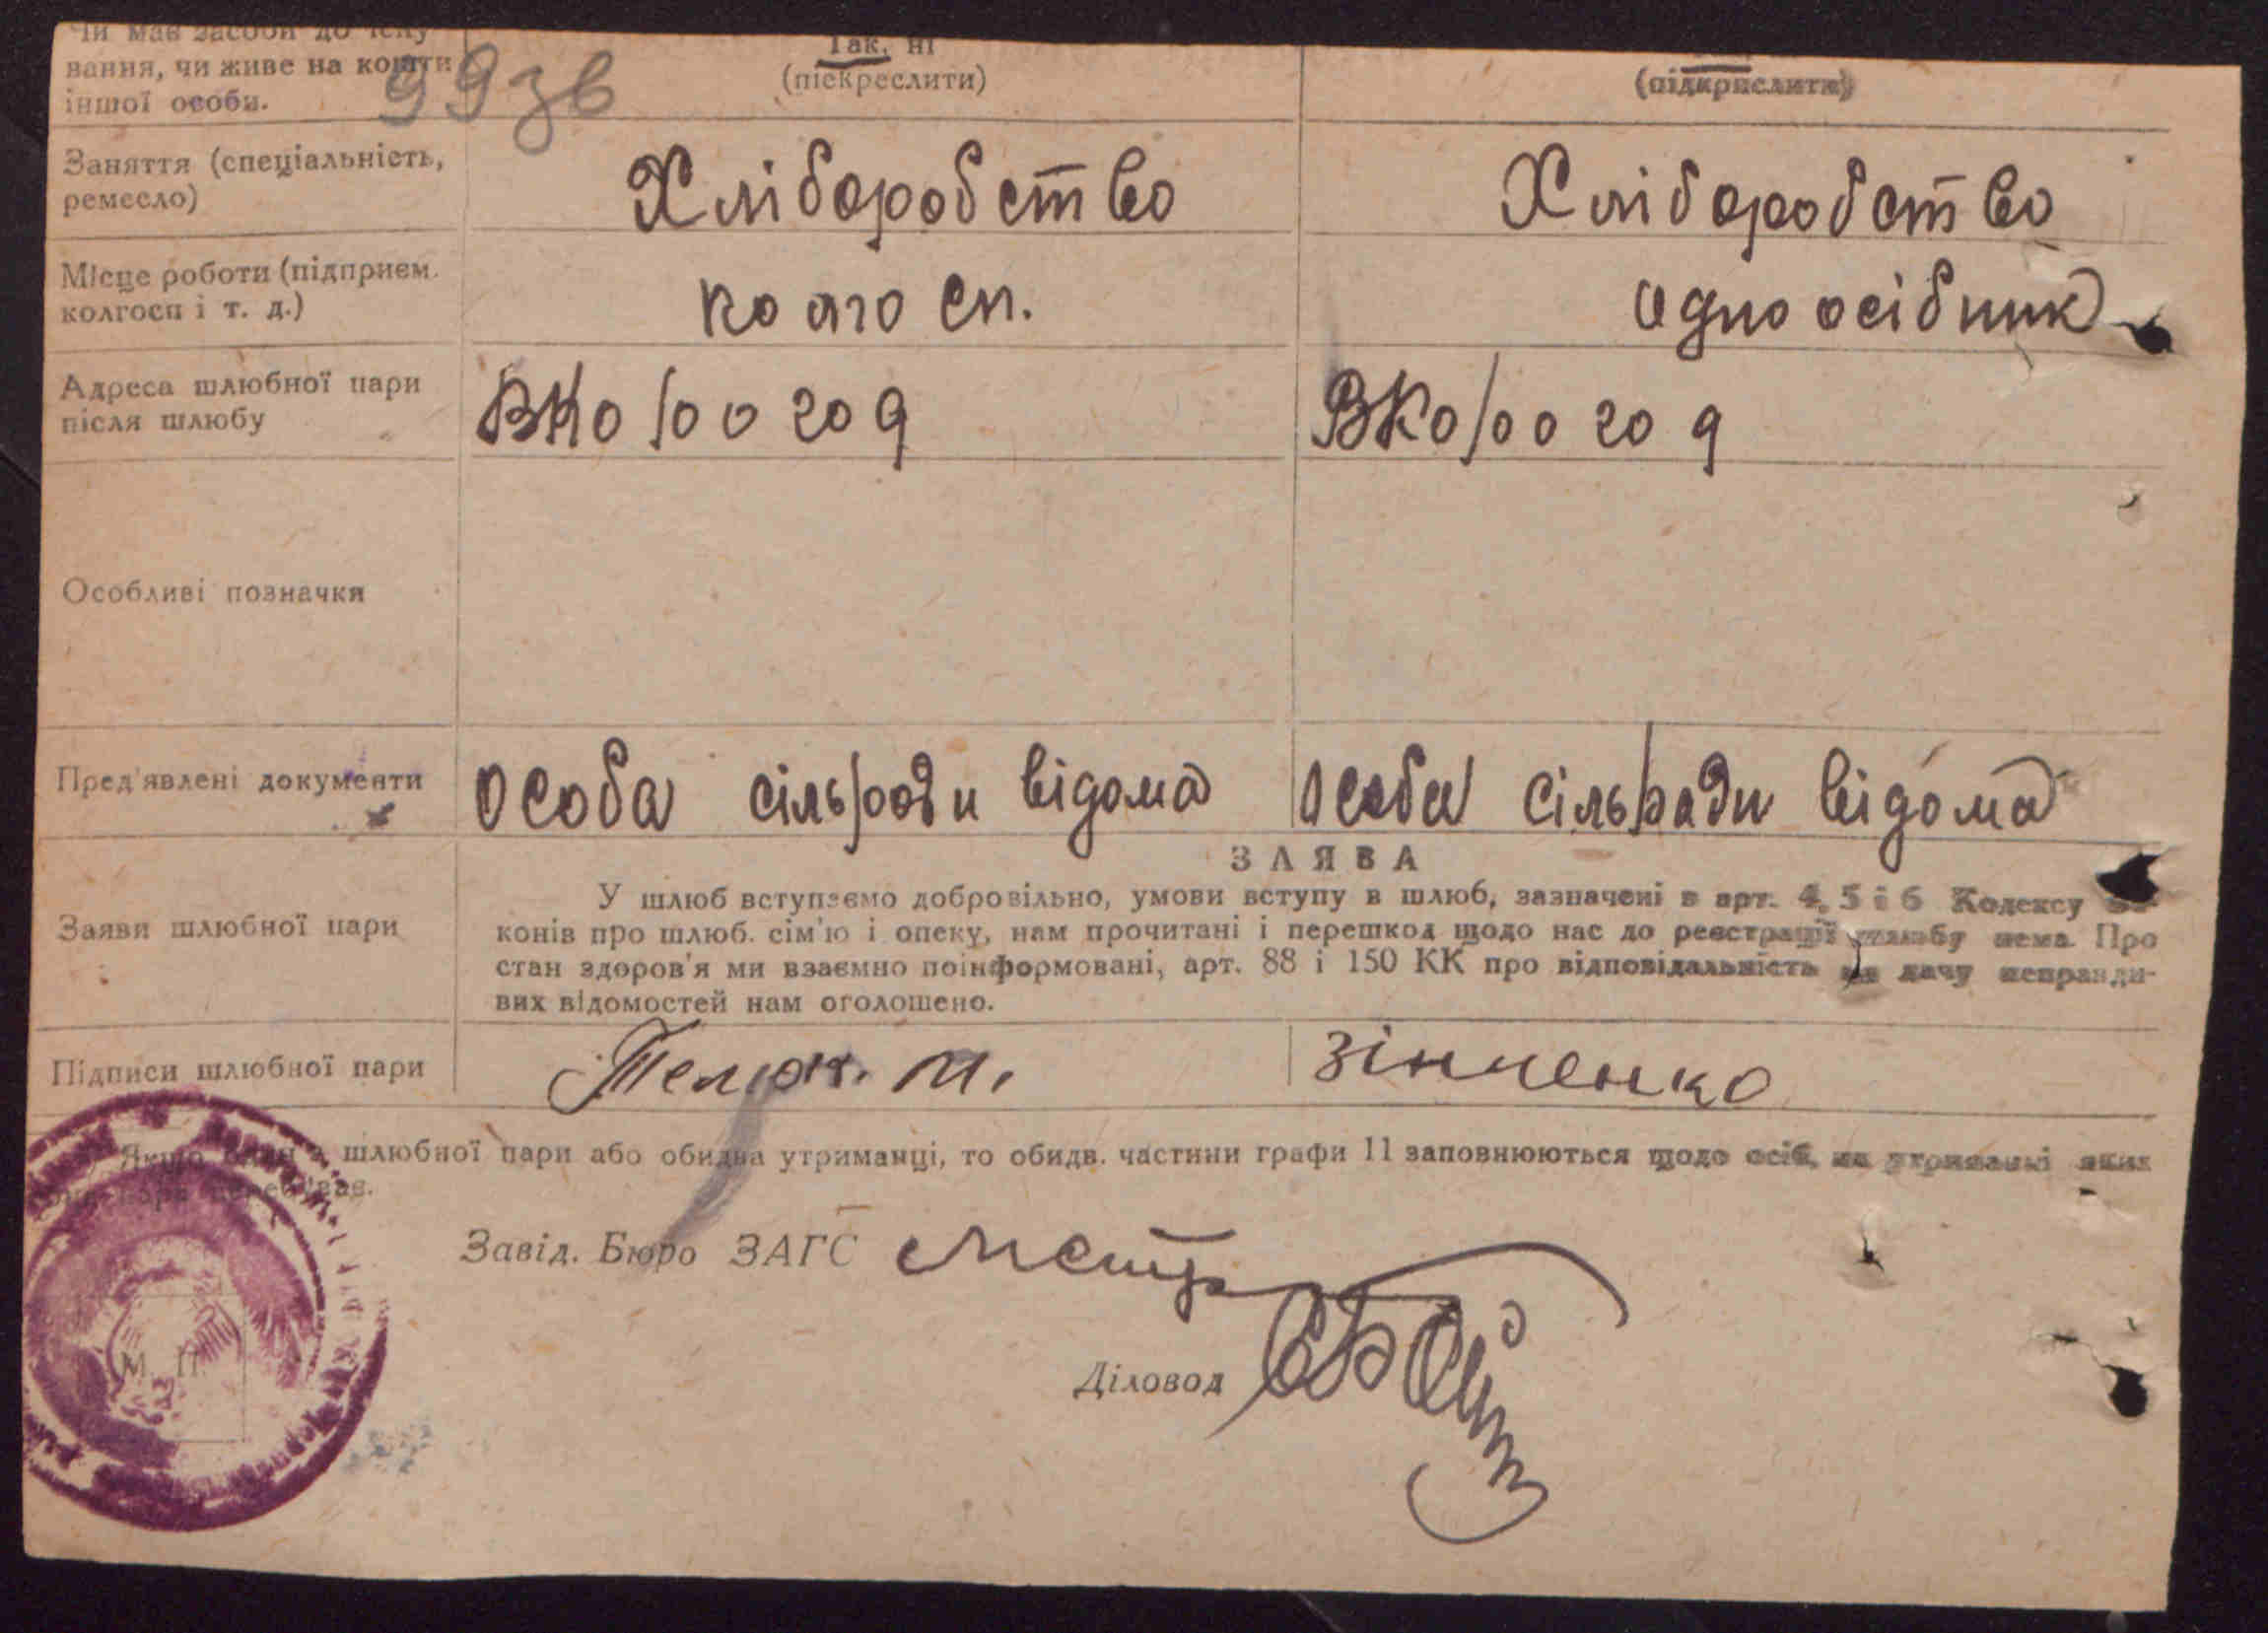 Чи має засоби до існу
вання, чи живе на кошти
іншої особи.
99зв
Так, ні
(піскреслити)
(підкрислити)
Заняття (спеціальність,
ремесло)
Хліборобство
Хліборобство
Місце роботи (підприєм.
колгосп і т. д.)
колгосп.
Одноосібник
Адреса шлюбної пари
після шлюбу
Особливі позначки
Пред'явлені документи
Особа сільради відома
Особа сільради відома
ЗАЯВА
Заяви шлюбної пари
У шлюб вступаємо добровільно, умови вступу в шлюб, зазначені в арт. 4, 5 і 6 Кодексу
конів про шлюб. сім'ю і опеку, нам прочитані і перешкод щодо нас до реєстрації шлюбу нема. Про
стан здоров'я ми взаємно поінформовані, арт. 88 і 150 КК про відповідальність за дачу неправди-
вих відомостей нам оголошено.
Підписи шлюбної пари
Телюк. М.
Зінченко
Якщо один з шлюбної пари або обидва утриманці, то обидв. частини графи 11 заповнюються щодо осіб, на утриманні яких
перебуває.
Завід. Бюро ЗАГС
Діловод
М. П.